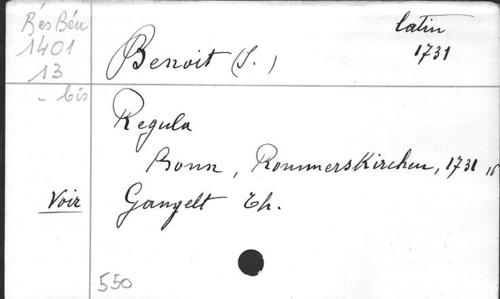 Rés Bén
1401
13
- bis
latin
1731
Benoit (S.)
Regula
Bonn, Rommerskirchen, 1731, 16
Voir Gangelt Th.
550